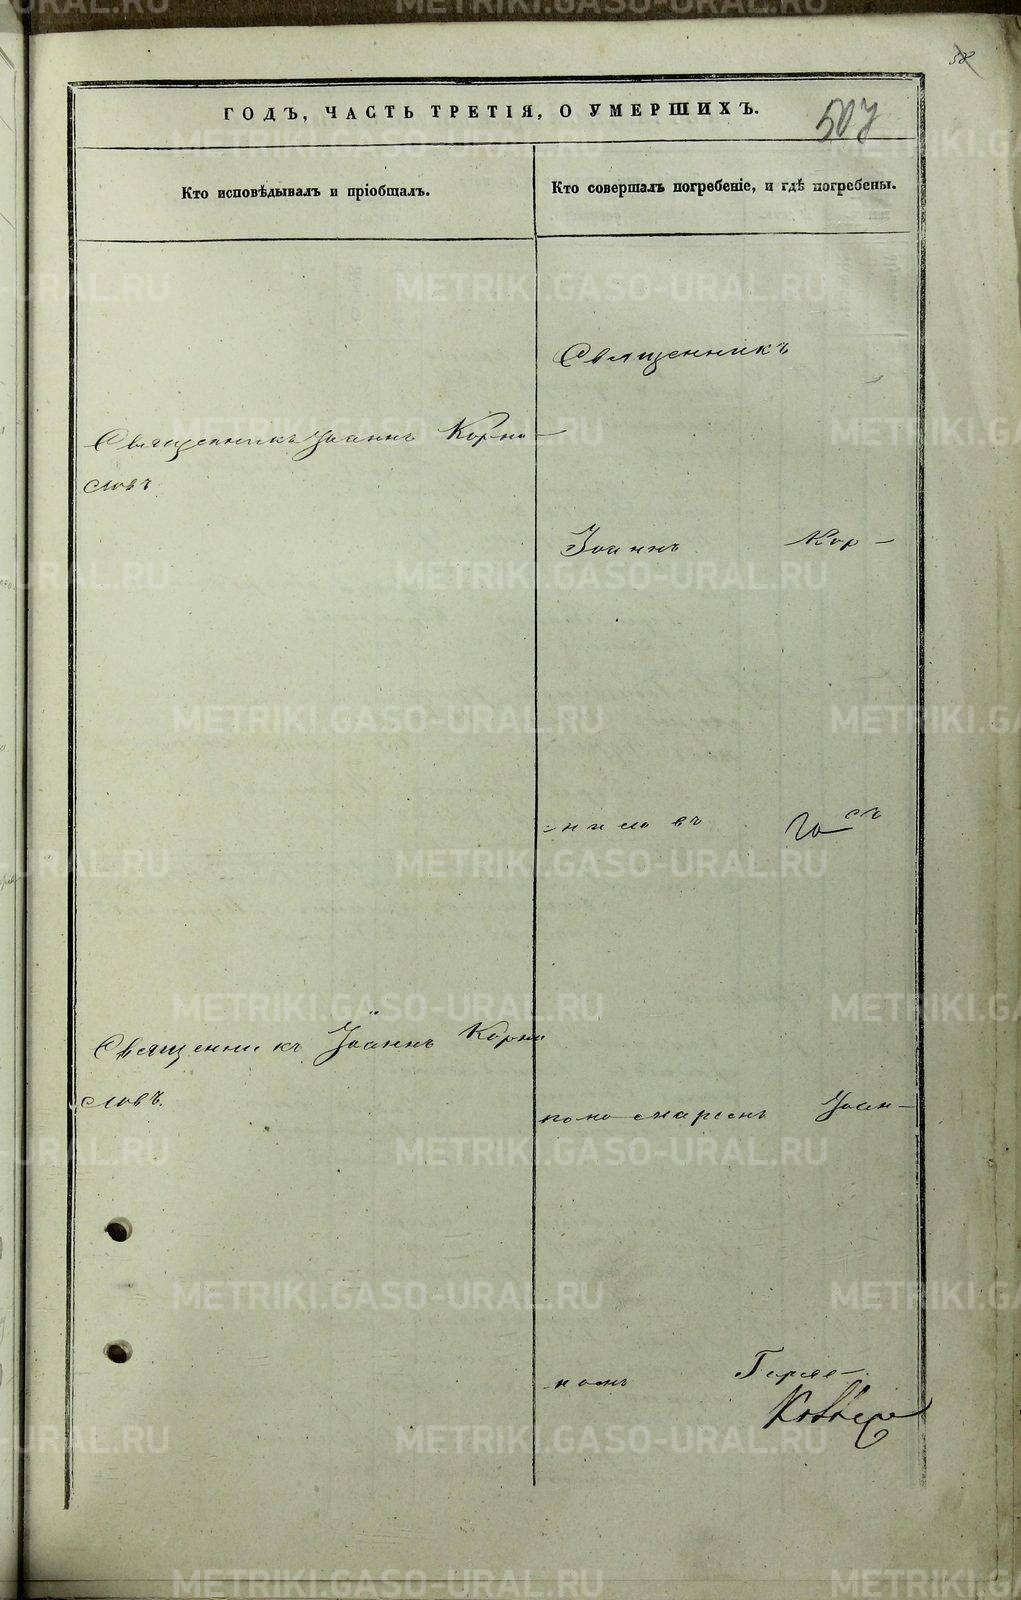 58
ГОДЪ, ЧАСТЬ ТРЕТІЯ, О УМЕРШИХЪ.
507
Кто исповѣдывалъ и пріобщалъ.
Кто совершалъ погребеніе, и гдѣ погребены.
Священникъ Іоаннъ Корни-
ловъ
Священникъ Іоаннъ Корни
ловъ.
Священникъ
Іоаннъ Кор-
=ниловъ съ
пономаремъ Іоан-
-номъ
METRIKI.GASO-URAL.RU